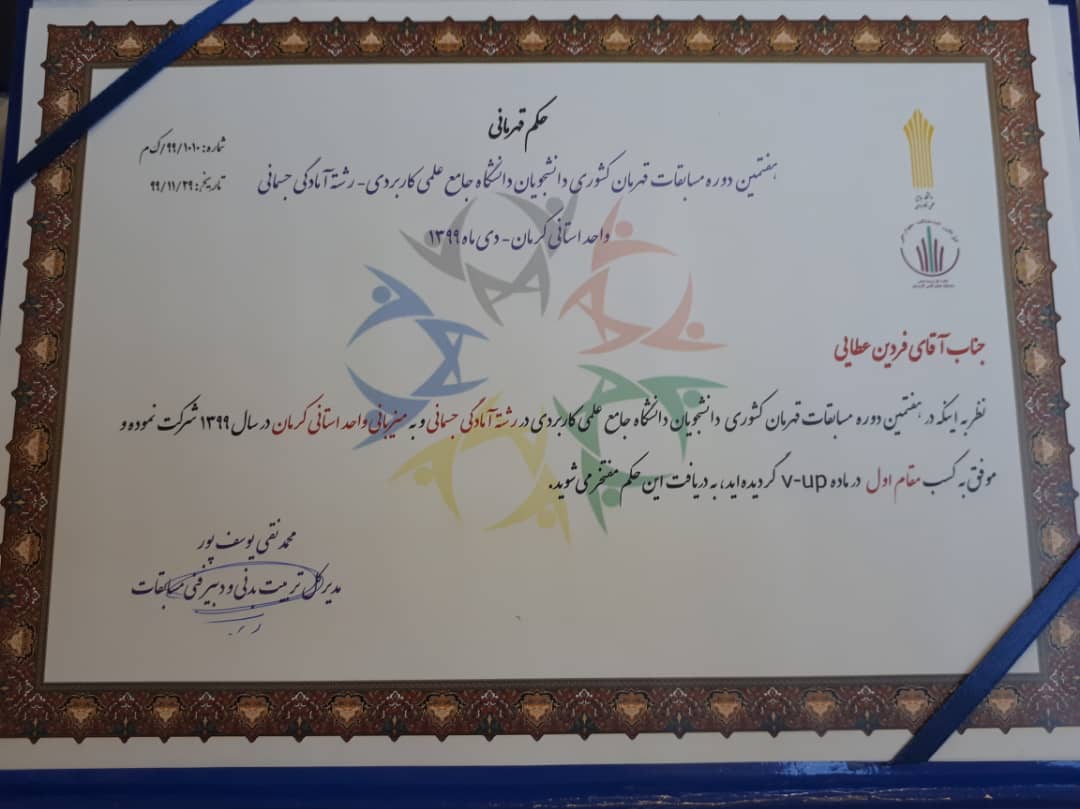 حکم قهرمانی
شماره: ۹۹/۱۰۱۰/ک م
هفتمین دوره مسابقات قهرمان کشوری دانشجویان دانشگاه جامع علمی کاربردی - رشته آمادگی جسمانی
تاریخ: ۹۹/۱۱/۲۹
واحد استانی کرمان - دی ماه ۱۳۹۹
جناب آقای فردین عطایی
نظر به اینکه در هفتمین دوره مسابقات قهرمان کشوری دانشجویان دانشگاه جامع علمی کاربردی در رشته آمادگی جسمانی و به میزبانی واحد استانی کرمان در سال ۱۳۹۹ شرکت نموده و
موفق به کسب مقام اول در ماده v-up گردیده اید، به دریافت این حکم مفتخر می شوید.
محمد نقی یوسف پور
مدیر کل تربیت بدنی و دبیر فنی مسابقات